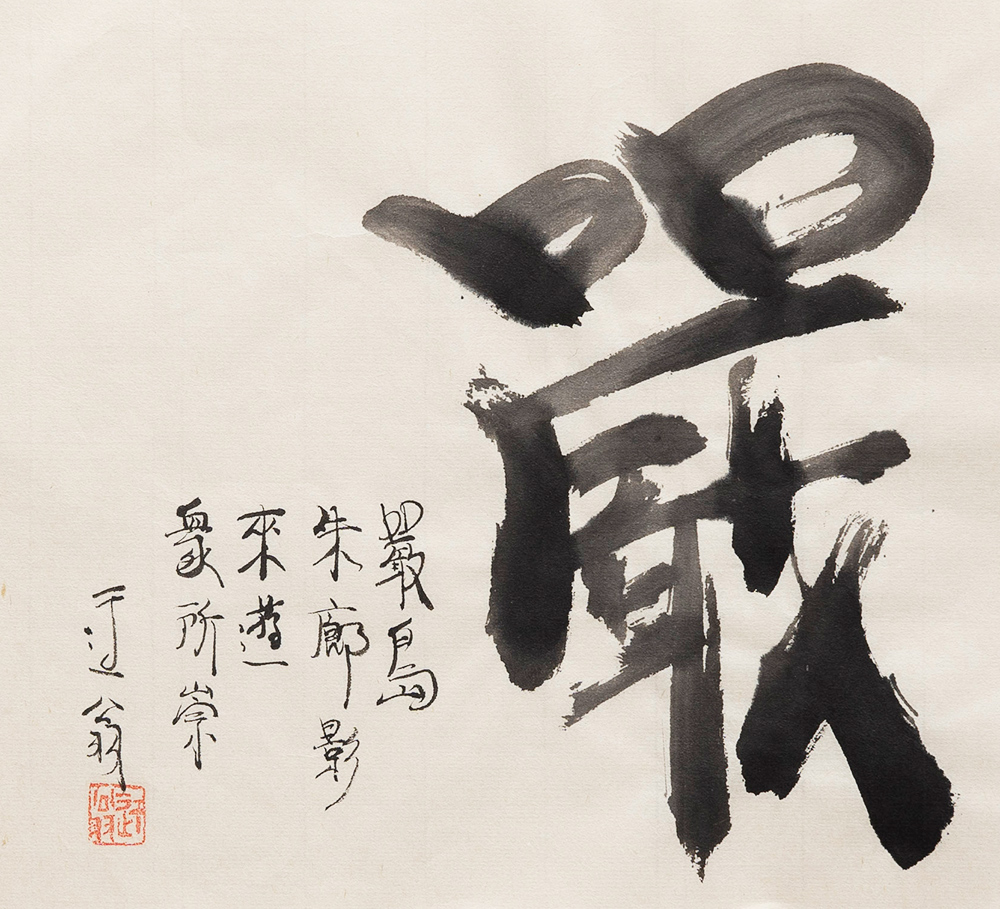 嚴
嚴島
朱廊影
來遊
衆所崇
翁